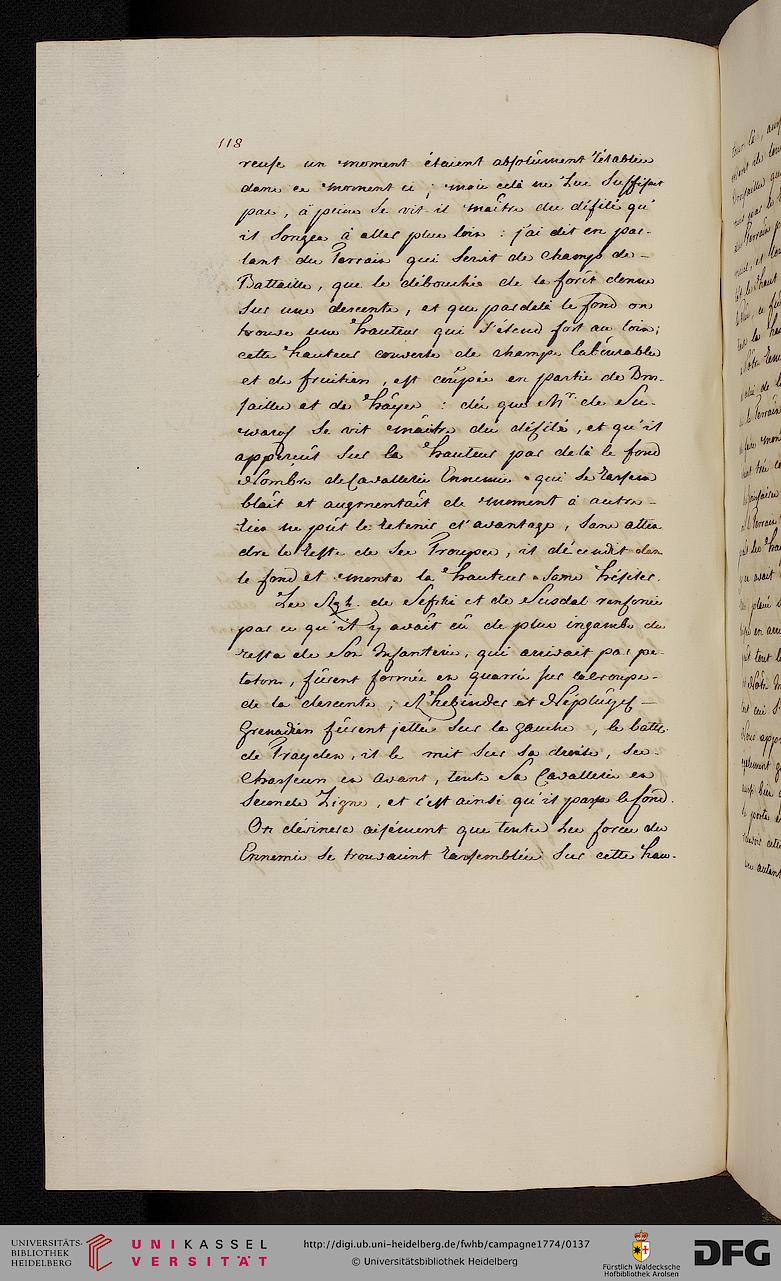 118
reuse un moment étaient absolûment rétablies
dans ce moment ci ; mais celà ne Lui Suffisait
pas, à peine Se vit-il maître du défilé qu'
il Songea à aller plus loin : j'ai dit en par-
lant du Terrain qui Servit de Champ de-
Battaille, que le débouchés de la forêt donne
Sur une descente, et que pardelà le fond on
trouve une hauteur qui S'étend fort au loin;
cette hauteur couverte de champs labourables
et de fruitiers, est coupée en partie de Bros-
sailles et de hâyes : dés que Mr. de Su-
warof Se vit maître du défilé, et qu'il
apperçût Sur la hauteur par delà le fond
Nombre de Cavallerie Ennemie qui Se rassem
blait et augmentait de moment à autre-
rien ne pût le retenir d'avantage, Sans atten
dre le reste de Ses Trouppes, il décendit dans
le fond et monta la hauteur Sans hésiter.
Les Rgts. de Sefski et de Susdal renforcés
par ce qu'il y avait eû de plus ingambe du
reste de Son Infanterie, qui arrivait par pe-
lotons, fûrent formés en quarré sur la croupe-
de la descente ; Rhebinder et Népluyef-
Grenadiers fûrent jettés Sur la gauche, le batt:
de Trayden, il le mit Sur Sa droite, Ses-
Chasseurs en avant, toute Sa Cavallerie en
Seconde Ligne, et c'est ainsi qu'il passa le fond.
On dévinera aisément que toutes Les forces des
Ennemis Se trouvaient rassemblées Sur cette hau-
UNIVERSITÄTS-
BIBLIOTHEK
HEIDELBERG
UNIKASSEL
VERSITÄT
http://digi.ub.uni-heidelberg.de/fwhb/campagne1774/0137
© Universitätsbibliothek Heidelberg
Fürstlich Waldecksche
Hofbibliothek Arolsen
DFG